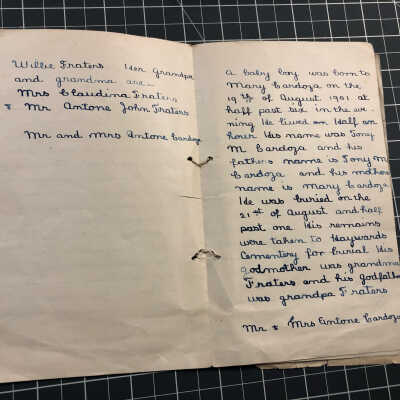 Willie Fraters Her Grandpa
and grandma are—
Mrs Claudina Fraters
& Mr Antone John Fraters
Mr and Mrs Antone Cardoza
A baby boy was born to
Mary Cardoza on the
19th of August 1901 at
half past six in the eve-
ning He lived an Half an
hour His name was Tony
M Cardoza and his
fathers name is Tony M
Cardoza and his mothers
name is Mary Cardoza
He was buried on the
21st of August and half
past one His remains
were taken to Haywards
Cementery for burial His
godmother was grandma
Fraters and his Godfather
was grandpa Fraters
Mr & Mrs Antone Cardoza